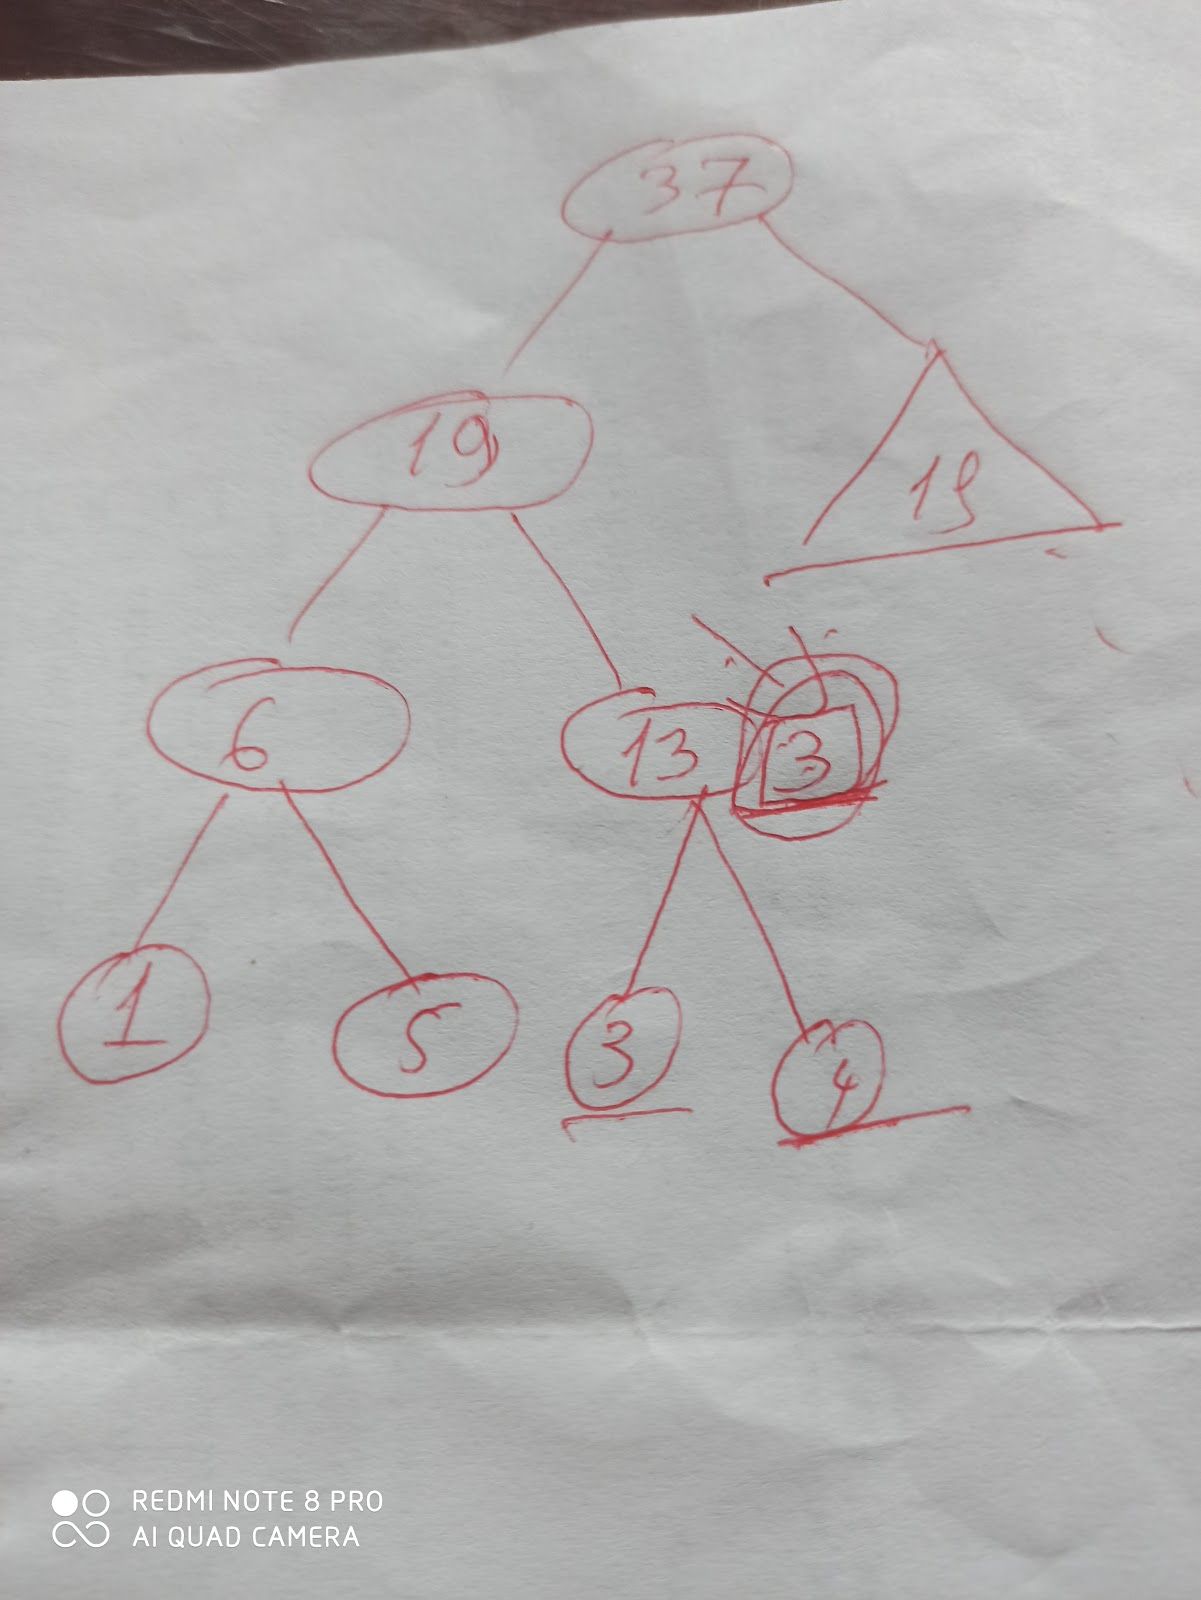 37
19
19
6
13
3
1
5
3
4
REDMI NOTE 8 PRO
AI QUAD CAMERA